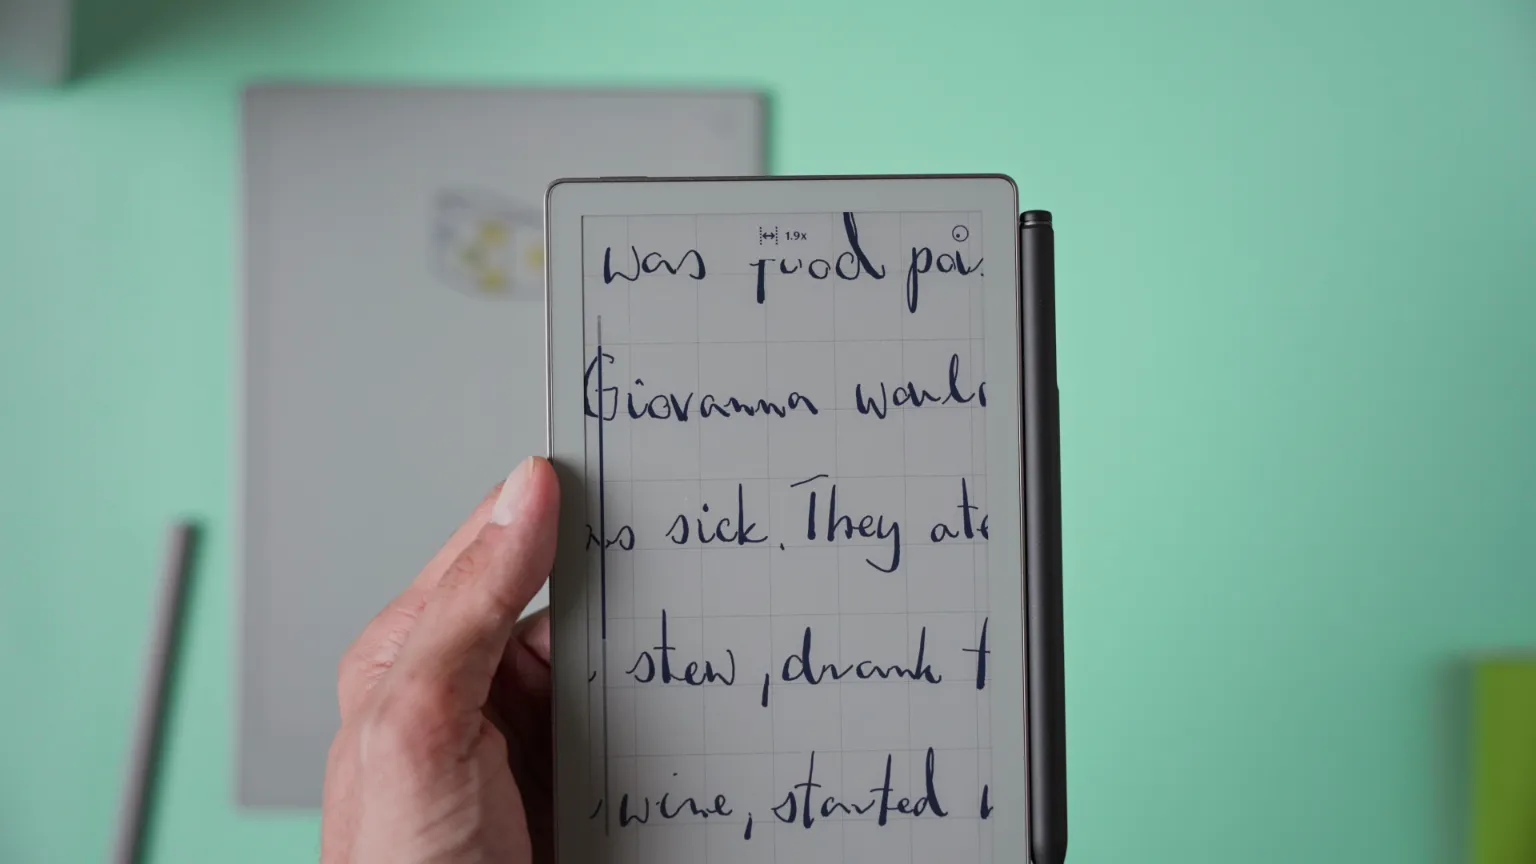 1.9x
was food
Giovanna
sick. They
stew, drank
wine, started